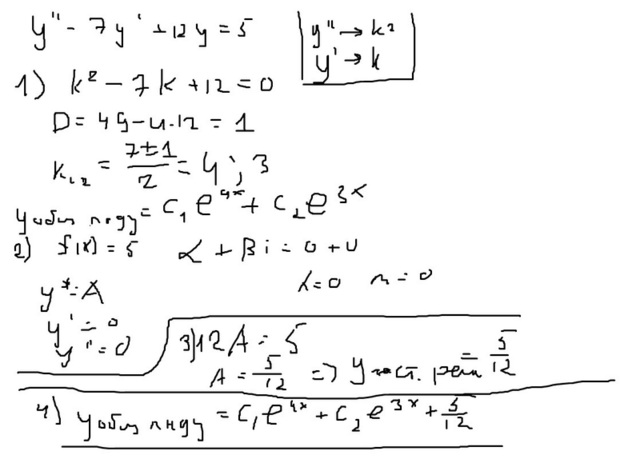 y'' - 7y' + 12y = 5
y'' → k²
y' → k
1) k² - 7k + 12 = 0
D = 49 - 4·12 = 1
k₁,₂ = (7±1)/2 = 4; 3
y общ лоду = C₁e^{4x} + C₂e^{3x}
2) f(x) = 5 α + βi = 0 + 0
y* = A
λ = 0 n = 0
y' = 0
y'' = 0
3) 12A = 5
A = 5/12 => y част. реш = 5/12
4) y общ лнду = C₁e^{4x} + C₂e^{3x} + 5/12